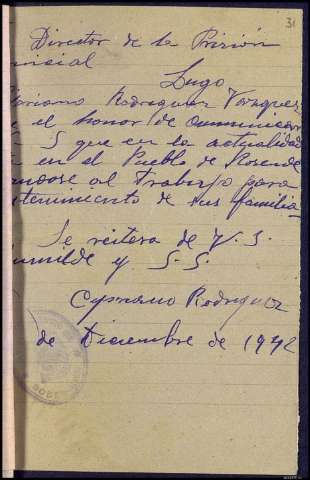 31
Director de la Prisión
incial
Lugo
ipriano Rodriguez Vazquez
el honor de comunicar
S que en la actualidad
en el Pueblo de Rosende
andose al trabajo para
stenimiento de sus familia
Se reitera de V. S.
umilde y S. S.
Cipriano Rodriguez
de Diciembre de 1942